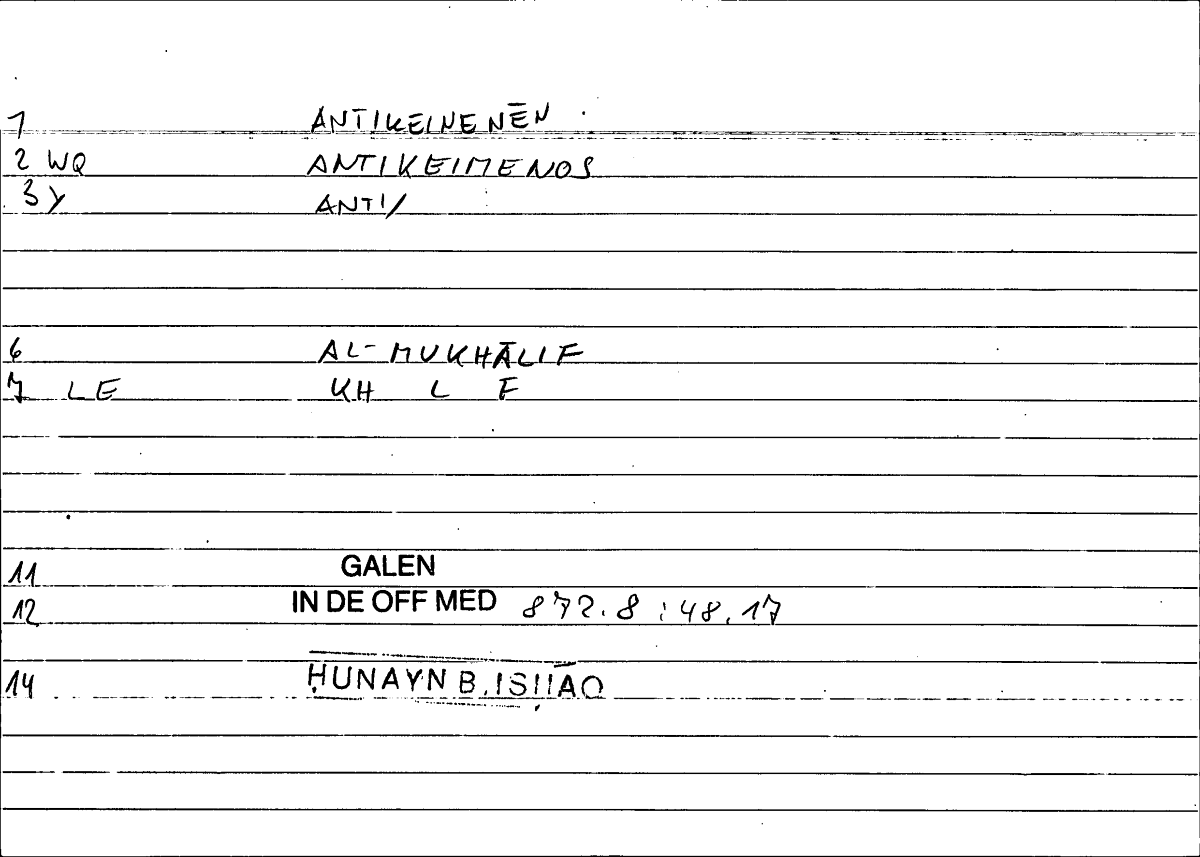 1 ANTIKEINENĒN
2 WQ ANTIKEIMENOS
3 Y ANTI/
6 AL-MUKHĀLIF
7 LE KH L F
11 GALEN
12 IN DE OFF MED 872.8 : 48.17
14 ḤUNAYN B. ISḤĀQ